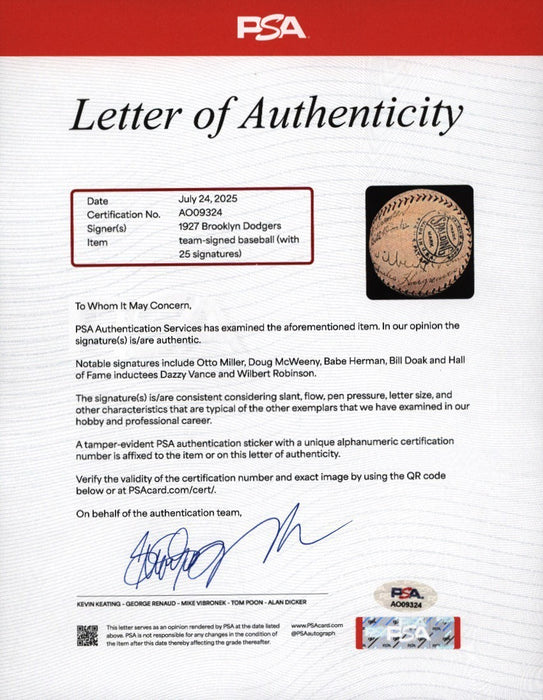 PSA
Letter of Authenticity
Date July 24, 2025
Certification No. AO09324
Signer(s) 1927 Brooklyn Dodgers
Item team-signed baseball (with
25 signatures)
To Whom It May Concern,
PSA Authentication Services has examined the aforementioned item. In our opinion the
signature(s) is/are authentic.
Notable signatures include Otto Miller, Doug McWeeny, Babe Herman, Bill Doak and Hall
of Fame inductees Dazzy Vance and Wilbert Robinson.
The signature(s) is/are consistent considering slant, flow, pen pressure, letter size, and
other characteristics that are typical of the other exemplars that we have examined in our
hobby and professional career.
A tamper-evident PSA authentication sticker with a unique alphanumeric certification
number is affixed to the item or on this letter of authenticity.
Verify the validity of the certification number and exact image by using the QR code
below or at PSAcard.com/cert/.
On behalf of the authentication team,
KEVIN KEATING - GEORGE RENAUD - MIKE VIBRONEK - TOM POON - ALAN DICKER
This letter serves as an opinion rendered by PSA at the date listed
above. PSA is not responsible for any changes in the condition of
the item after this date thereby affecting the grade thereafter.
www.PSAcard.com
@PSAautograph
PSA
AO09324
PSA